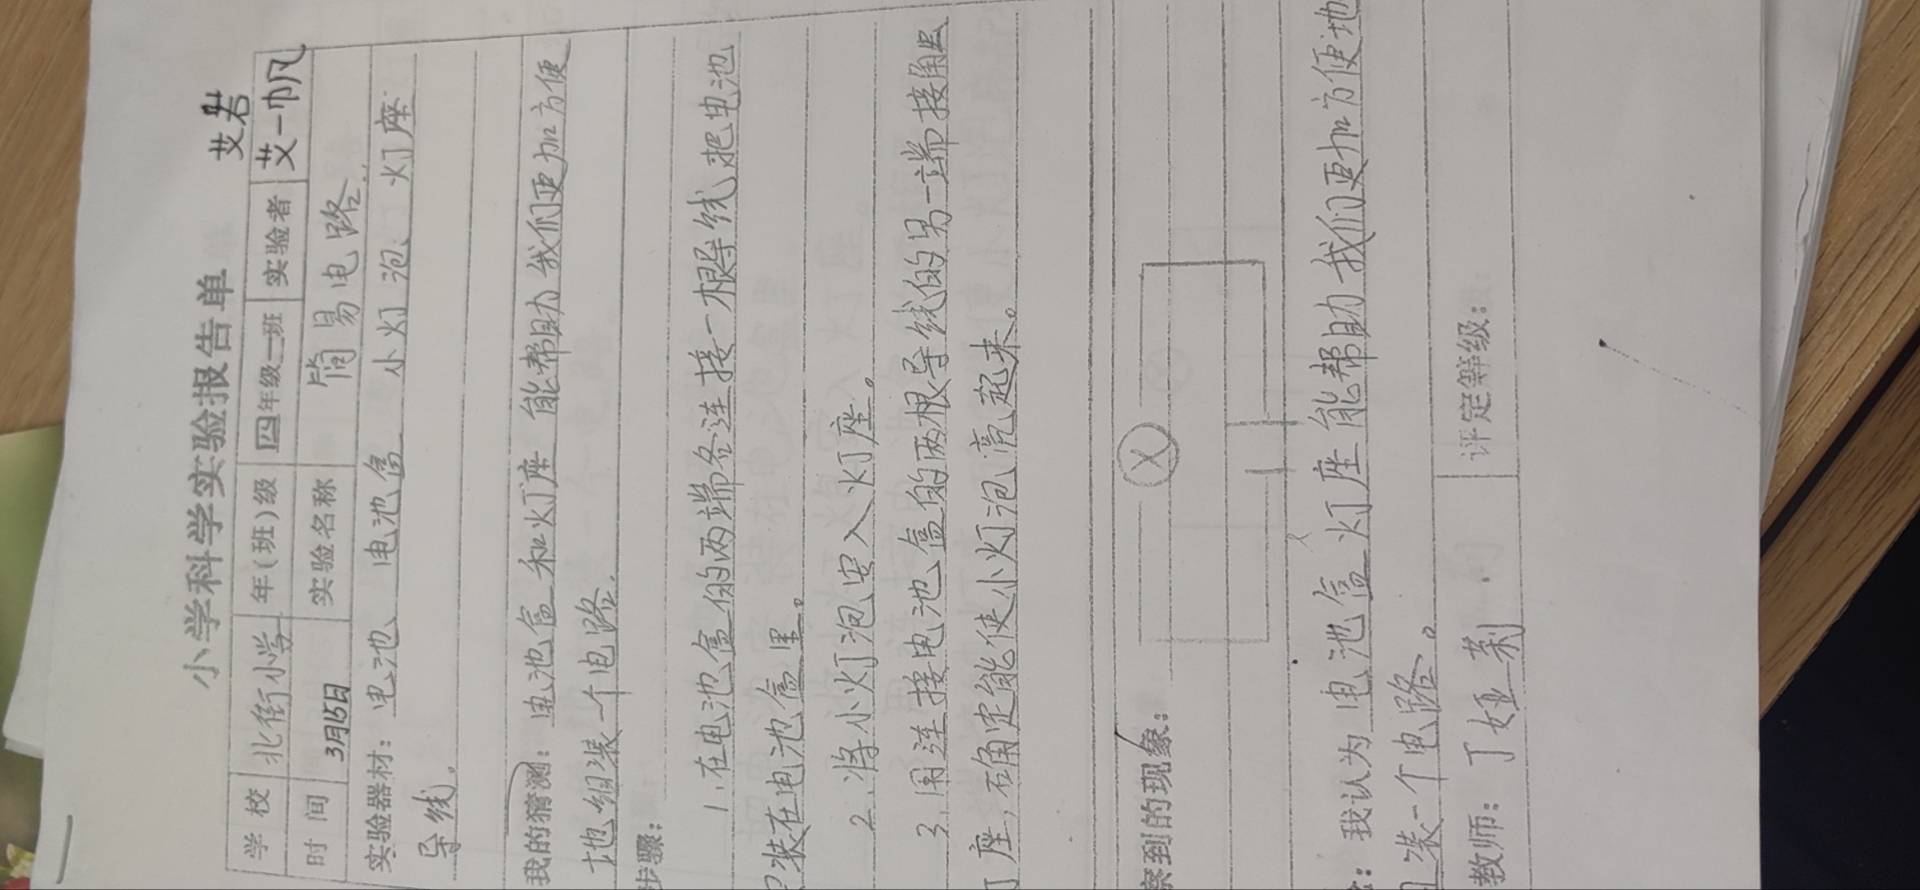 小学科学实验报告单
艾君
学校 北街小学 年(班)级 四年级一班 实验者 艾一帆
时间 3月15日 实验名称 简易电路
实验器材：电池、电池盒、小灯泡、灯座
导线。
我的猜测：电池盒和灯座能帮助我们更加方便
地组装一个电路。
步骤：
1.在电池盒的两端各连接一根导线,把电池
装在电池盒里。
2.将小灯泡安入灯座。
3.用连接电池盒的两根导线的另一端接触
座,确定能使小灯泡亮起来。
察到的现象：
：我认为电池盒、灯座能帮助我们更加方便地
装一个电路。
教师：丁娅莉 评定等级：